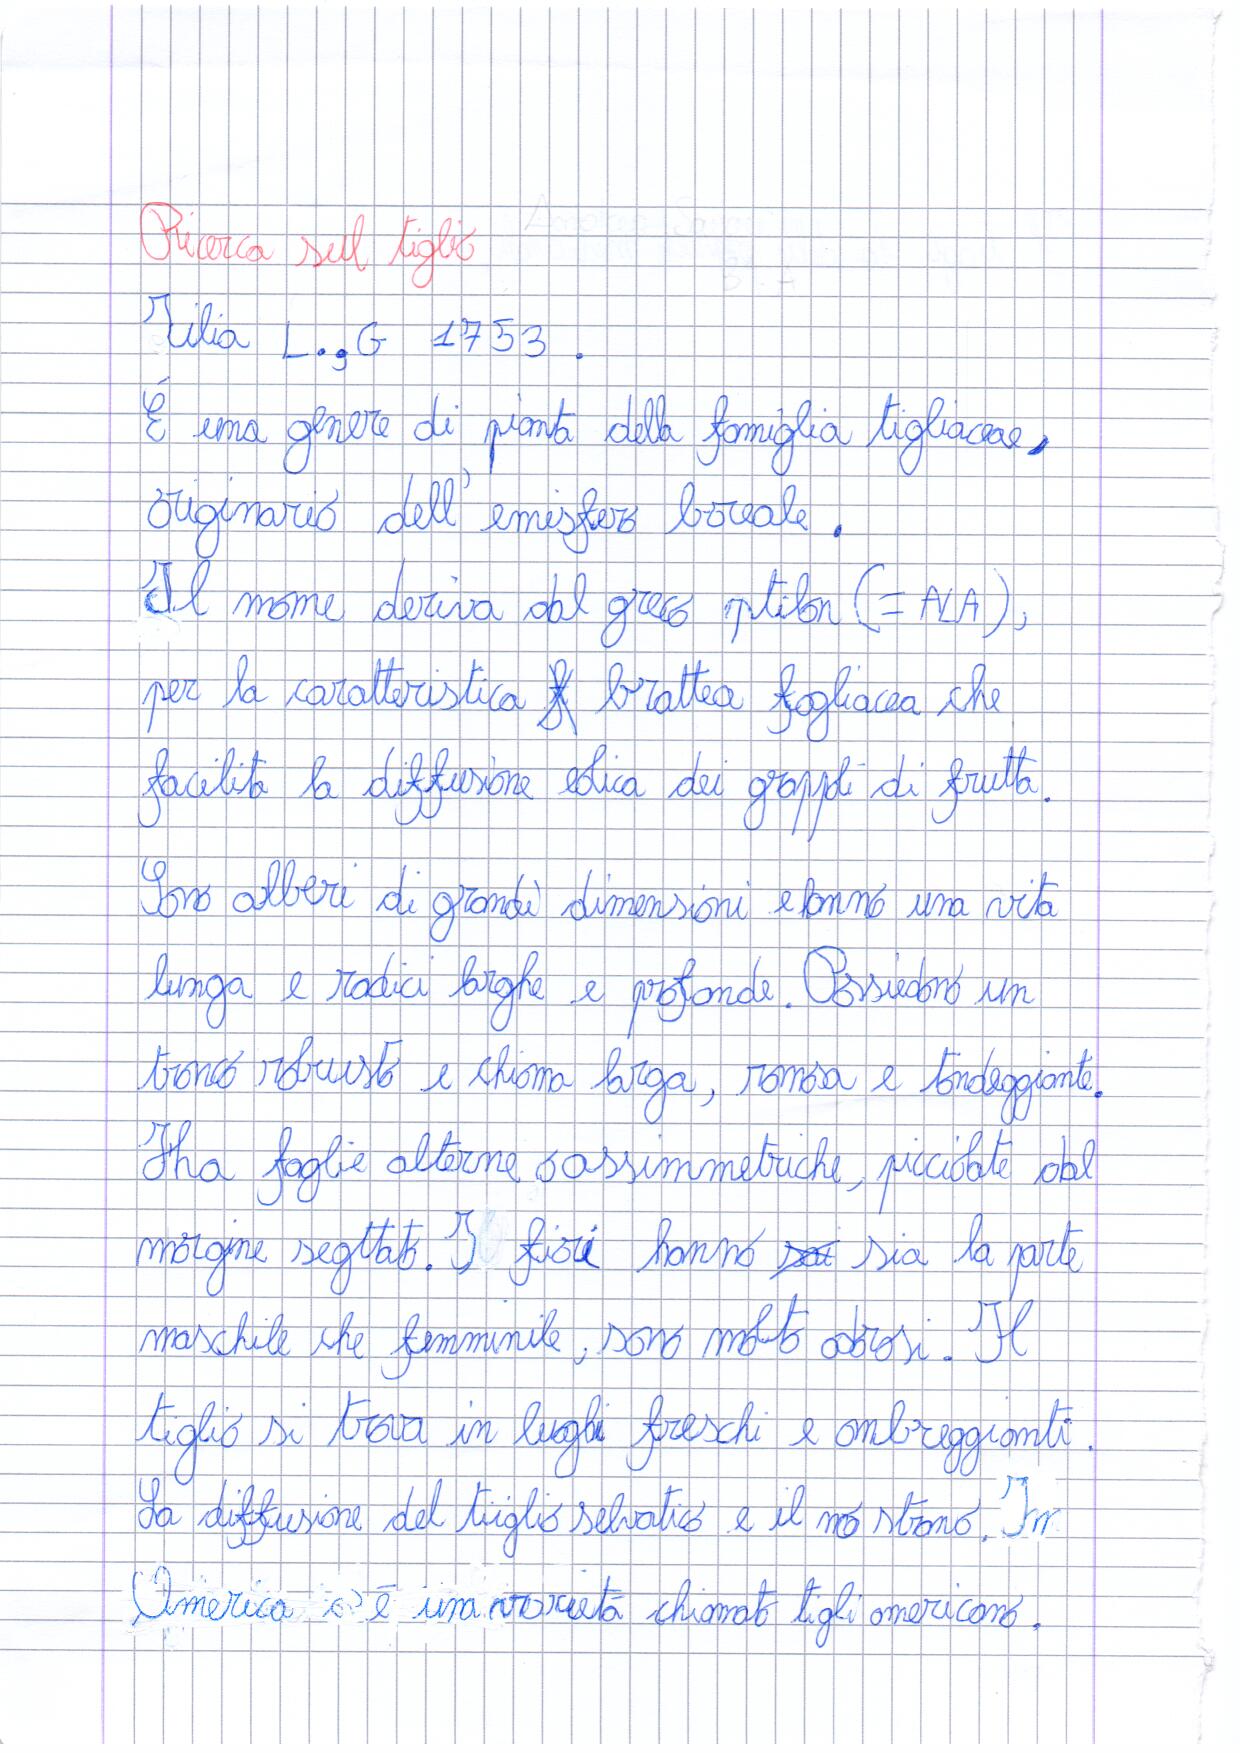 Ricerca sul tiglio
Tilia L.,G 1753.
È una genere di pianta della famiglia tigliaceae,
originario dell'emisfero boreale.
Il nome deriva dal greco ptilon (= ALA),
per la caratteristica brattea fogliacea che
facilita la diffusione eolica dei grappoli di frutta.
Sono alberi di grandi dimensioni e anno una vita
lunga e radici larghe e profonde. Possiedono un
tronco robusto e chioma larga, ramosa e tondeggiante.
Tha foglie alterne o assimmetriche, picciolate dal
margine segttato. I fiori hanno sia la parte
maschile che femminile, sono molto odorosi. Il
tiglio si trova in luoghi freschi e ombreggianti.
La diffusione del tiglio selvatico e il nostrano. In
America c'è una varietà chiamato tigli americano.